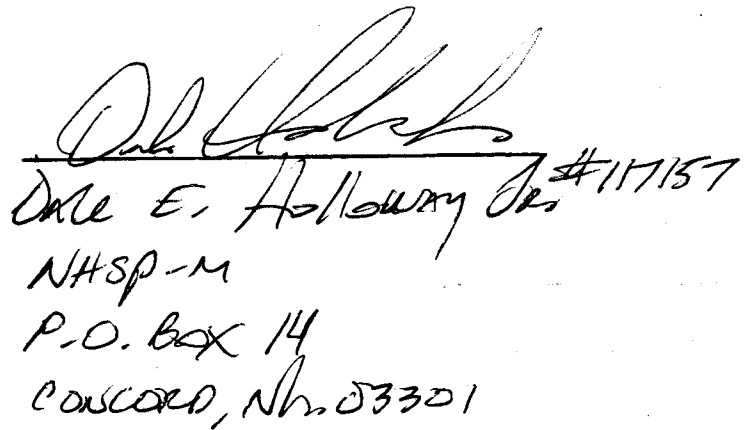 Dale Holloway
Dale E. Holloway Jr. #117157
NHSP-M
P.O. BOX 14
CONCORD, Nh. 03301